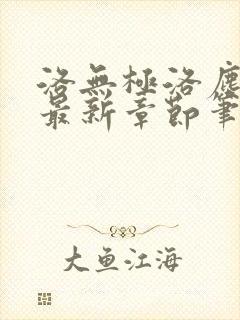 洛無極洛塵
最新章節筆
大鱼江海